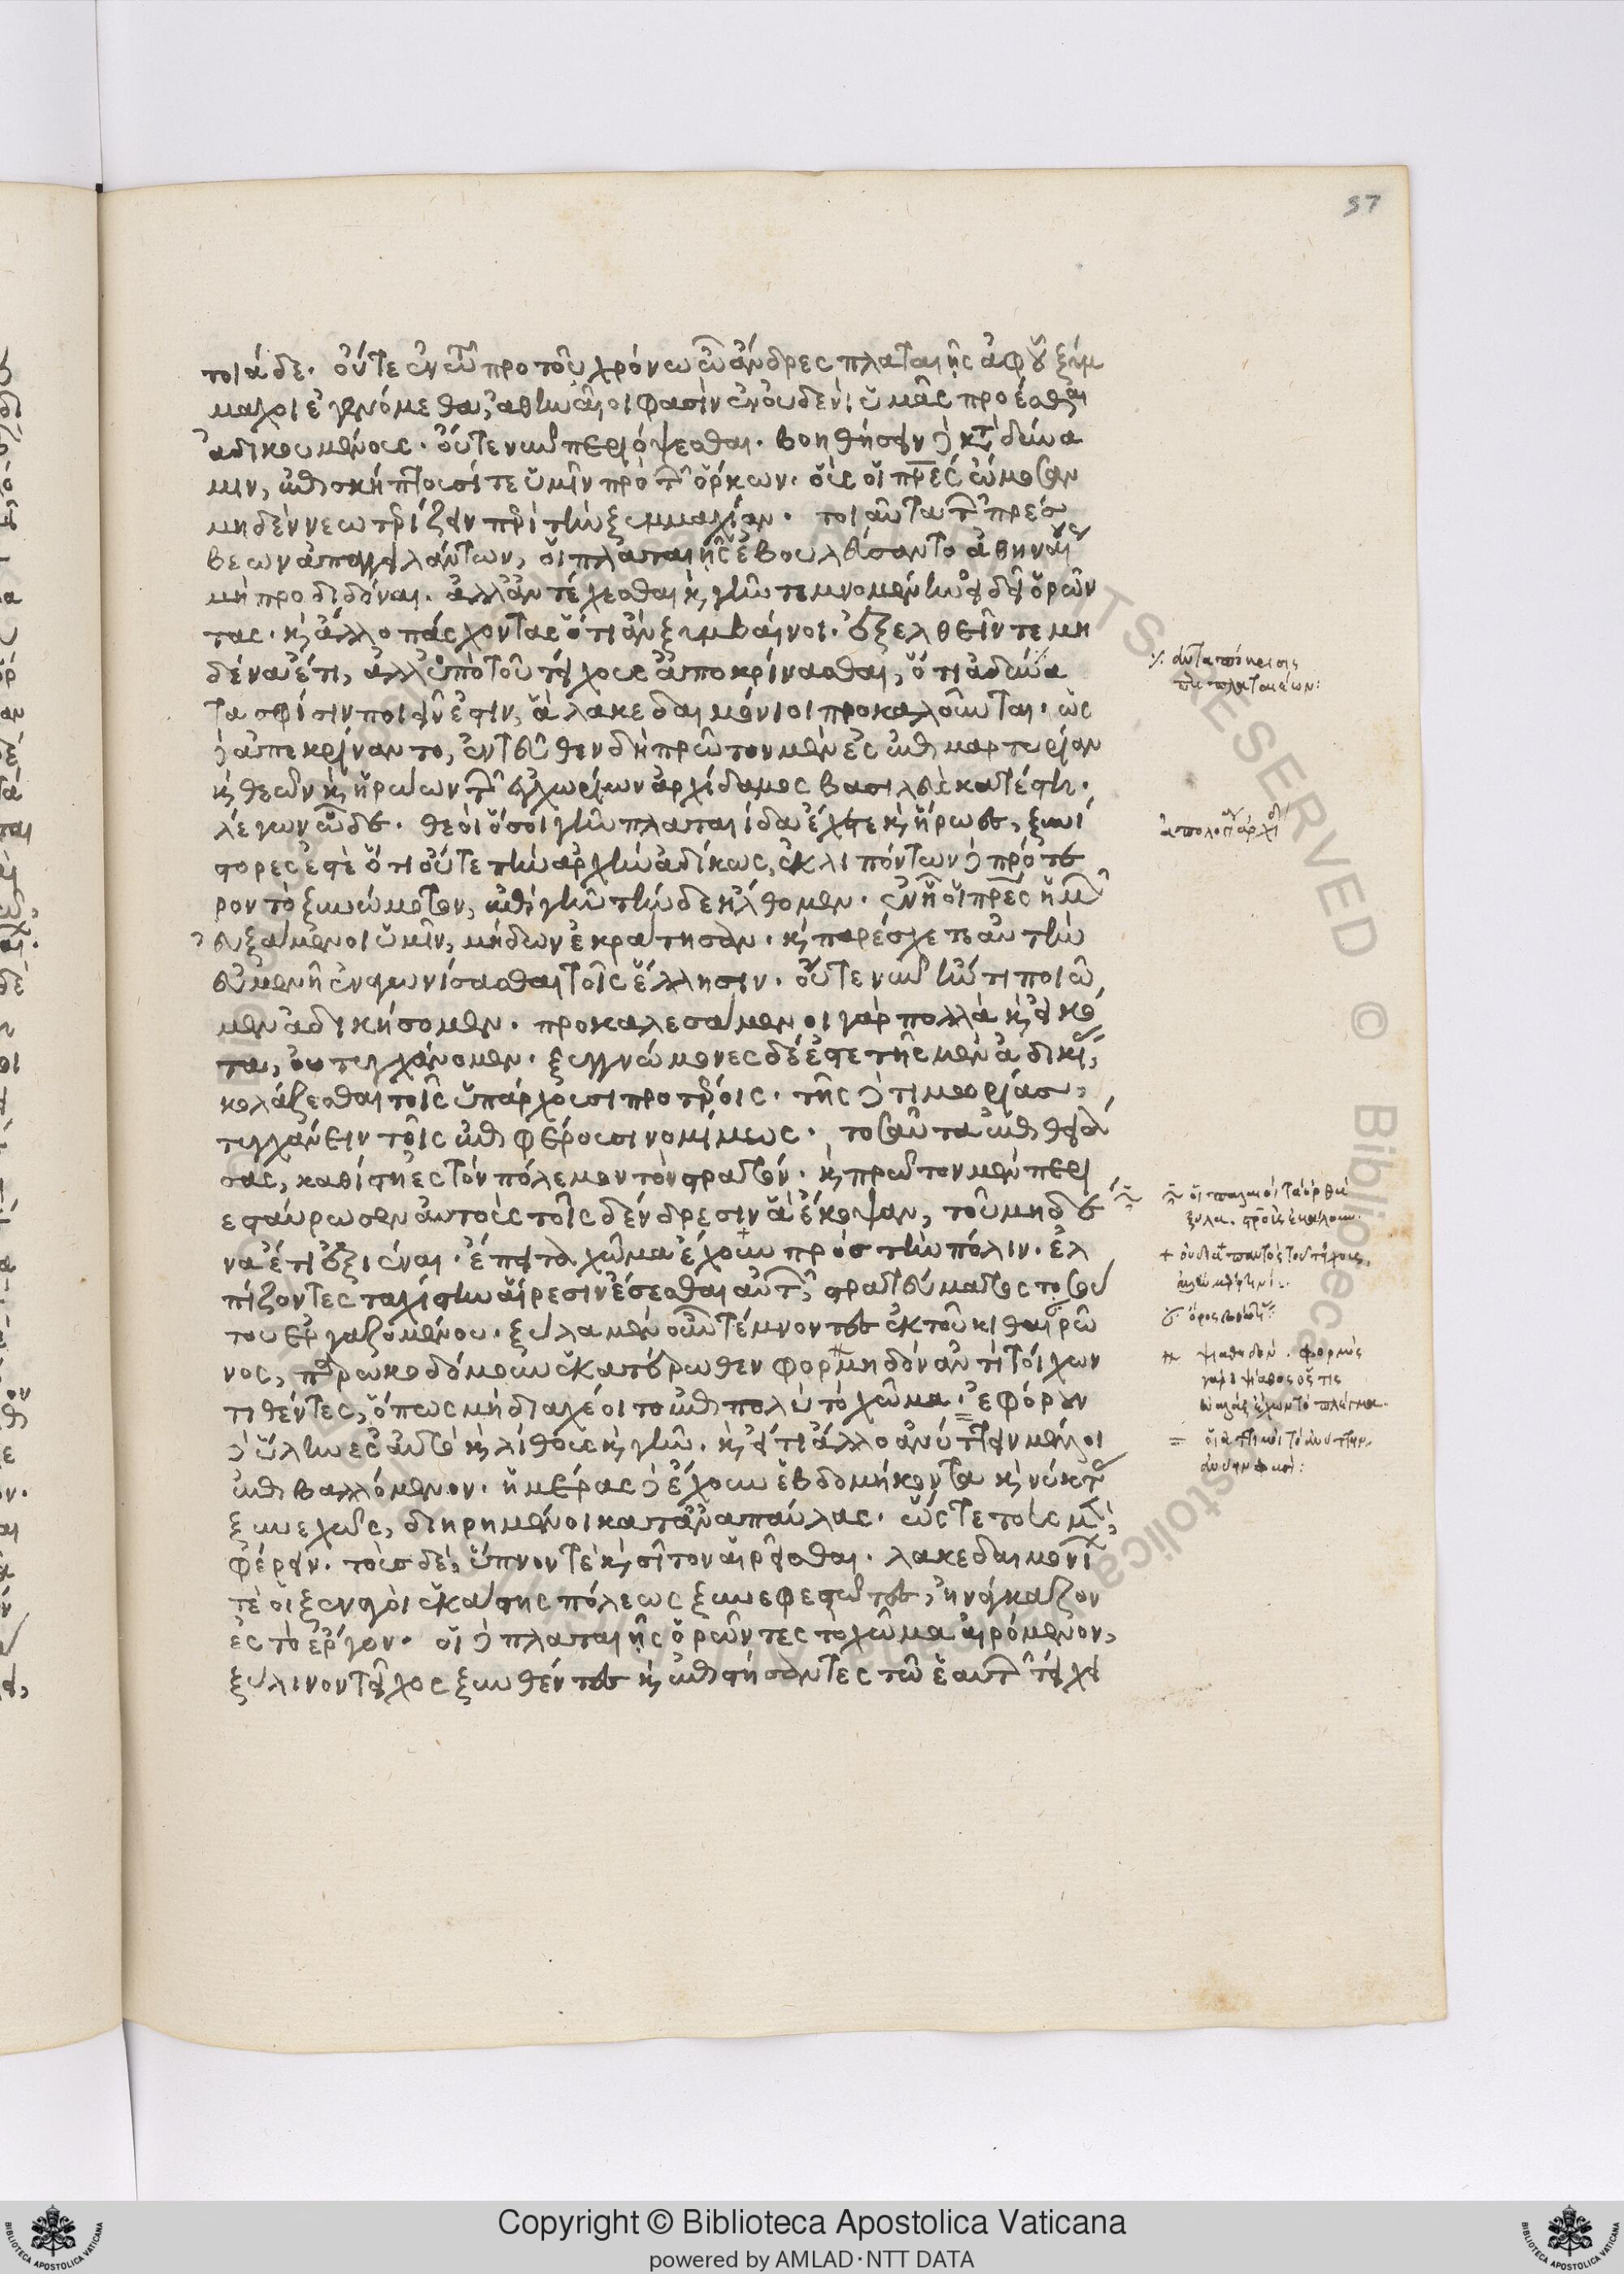 57
τοιάδε. οὔτε ἐν τῷ προτοῦ χρόνω ὦ ἄνδρες πλαταιῆς ἀφ' οὗ ξύμ
μαχοι ἐγενόμεθα, ἀθηναῖοι φασὶν ἐν οὐδενὶ ὑμᾶς προέσθαι
ἀδικουμένους. οὔτε νῦν περιόψεσθαι. βοηθήσειν δὲ κατὰ δύνα
μιν, ἐπισκήπτουσί τε ὑμῖν πρὸς τῶν ὅρκων. οὓς οἱ πρες ὤμοσαν
μηδὲν νεωτερίζειν περὶ τὴν ξυμμαχίαν. τοιαῦτα τῶν πρέσ
βεων ἀπαγγειλάντων, οἱ πλαταιῆς ἐβουλεύσαντο ἀθηναίους
μὴ προδιδόναι. ἀλλ' ἀντέχεσθαι καὶ γῆν τεμνομένην εἰ δεῖ ὁρῶν
τας. καὶ ἄλλο πάσχοντας ὅτι ἂν ξυμβαίνοι. ἐξελθεῖν τε μη
δένα ἔτι, ἀλλ' ἀπὸ τοῦ τείχους ἀποκρίνασθαι, ὅτι ἀδύνα
τα σφίσιν ποιεῖν ἐστιν, ἃ λακεδαιμόνιοι προκαλοῦνται. ὡς
δὲ ἀπεκρίναντο, ἐντεῦθεν δὴ πρῶτον μὲν ἐς ἐπιμαρτυρίαν
καὶ θεῶν καὶ ἡρώων τῶν ἐγχωρίων ἀρχίδαμος βασιλεὺς κατέστη.
λέγων ὧδε. θεοὶ ὅσοι γῆν πλαταιίδα ἔχετε καὶ ἥρωες, ξυνί
στορες ἐστὲ ὅτι οὔτε τὴν ἀρχὴν ἀδίκως, ἐκλιπόντων δὲ πρότε
ρον τὸ ξυνώμοτον, ἐπὶ γῆν τήνδε ἤλθομεν. ἐν ᾗ οἱ πρες ἡμῶν
εὐξάμενοι ὑμῖν, μήδων ἐκράτησαν. καὶ παρέσχετε αὐτὴν
εὐμενῆ ἐναγωνίσασθαι τοῖς ἕλλησιν. οὔτε νῦν ἤν τι ποιῶ
μεν ἀδικήσομεν. προκαλεσάμενοι γὰρ πολλὰ καὶ εἰκό
τα, οὐ τυγχάνομεν. ξυγγνώμονες δὲ ἔστε τῆς μὲν ἀδικίας
κολάζεσθαι τοῖς ὑπάρχουσι προτέροις. τῆς δὲ τιμωρίας,
τυγχάνειν τοῖς ἐπιφέρουσι νομίμως. τοσαῦτα ἐπιθειά
σας, καθίστη ἐς τὸν πόλεμον τὸν στρατόν. καὶ πρῶτον μὲν περι
εσταύρωσεν αὐτοὺς τοῖς δένδρεσιν ἃ ἔκοψαν, τοῦ μηδέ
να ἔτι ἐξιέναι. ἔπειτα χῶμα ἔχουν πρὸς τὴν πόλιν. ἐλ
πίζοντες ταχίστην αἵρεσιν ἔσεσθαι αὐτῶν, στρατεύματος τοσού
του ἐργαζομένου. ξύλα μὲν οὖν τέμνοντες ἐκ τοῦ κιθαιρῶ
νος, παρωκοδόμουν ἑκατέρωθεν φορμηδὸν ἀντὶ τοίχων
τιθέντες, ὅπως μὴ διαχέοιτο ἐπὶ πολὺ τὸ χῶμα. ἐφόρουν
δὲ ὕλην ἐς αὐτὸ καὶ λίθους καὶ γῆν. καὶ εἴ τι ἄλλο ἀνύτειν μέλλοι
ἐπιβαλλόμενον. ἡμέρας δὲ ἔχουν ἑβδομήκοντα καὶ νύκτας
ξυνεχῶς, διῃρημένοι κατ' ἀναπαύλας. ὥστε τοὺς μὲν,
φέρειν. τοὺς δὲ, ὕπνον τὲ καὶ σῖτον αἱρεῖσθαι. λακεδαιμονίων
τὲ οἱ ξεναγοὶ ἑκάστης πόλεως ξυνεφεστῶτες, ἠνάγκαζον
ἐς τὸ ἔργον. οἱ δὲ πλαταιῆς ὁρῶντες τὸ χῶμα αἰρόμενον,
ξύλινον τεῖχος ξυνθέντες καὶ ἐπιστήσαντες τῶ ἑαυτῶν τείχει
ἀνταπόκρισις
τῶν πλαταιέων:
οἱ παλαιοὶ τὰ ὀρθὰ
ξύλα. σταυροὺς ἐκάλουν.
+ οὐ διὰ παντὸς τοῦ τείχους,
ὄρος βοιωτίας
ψιαθηδόν. φορμὸς
γὰρ ὁ ψίαθος
Copyright © Biblioteca Apostolica Vaticana
powered by AMLAD·NTT DATA